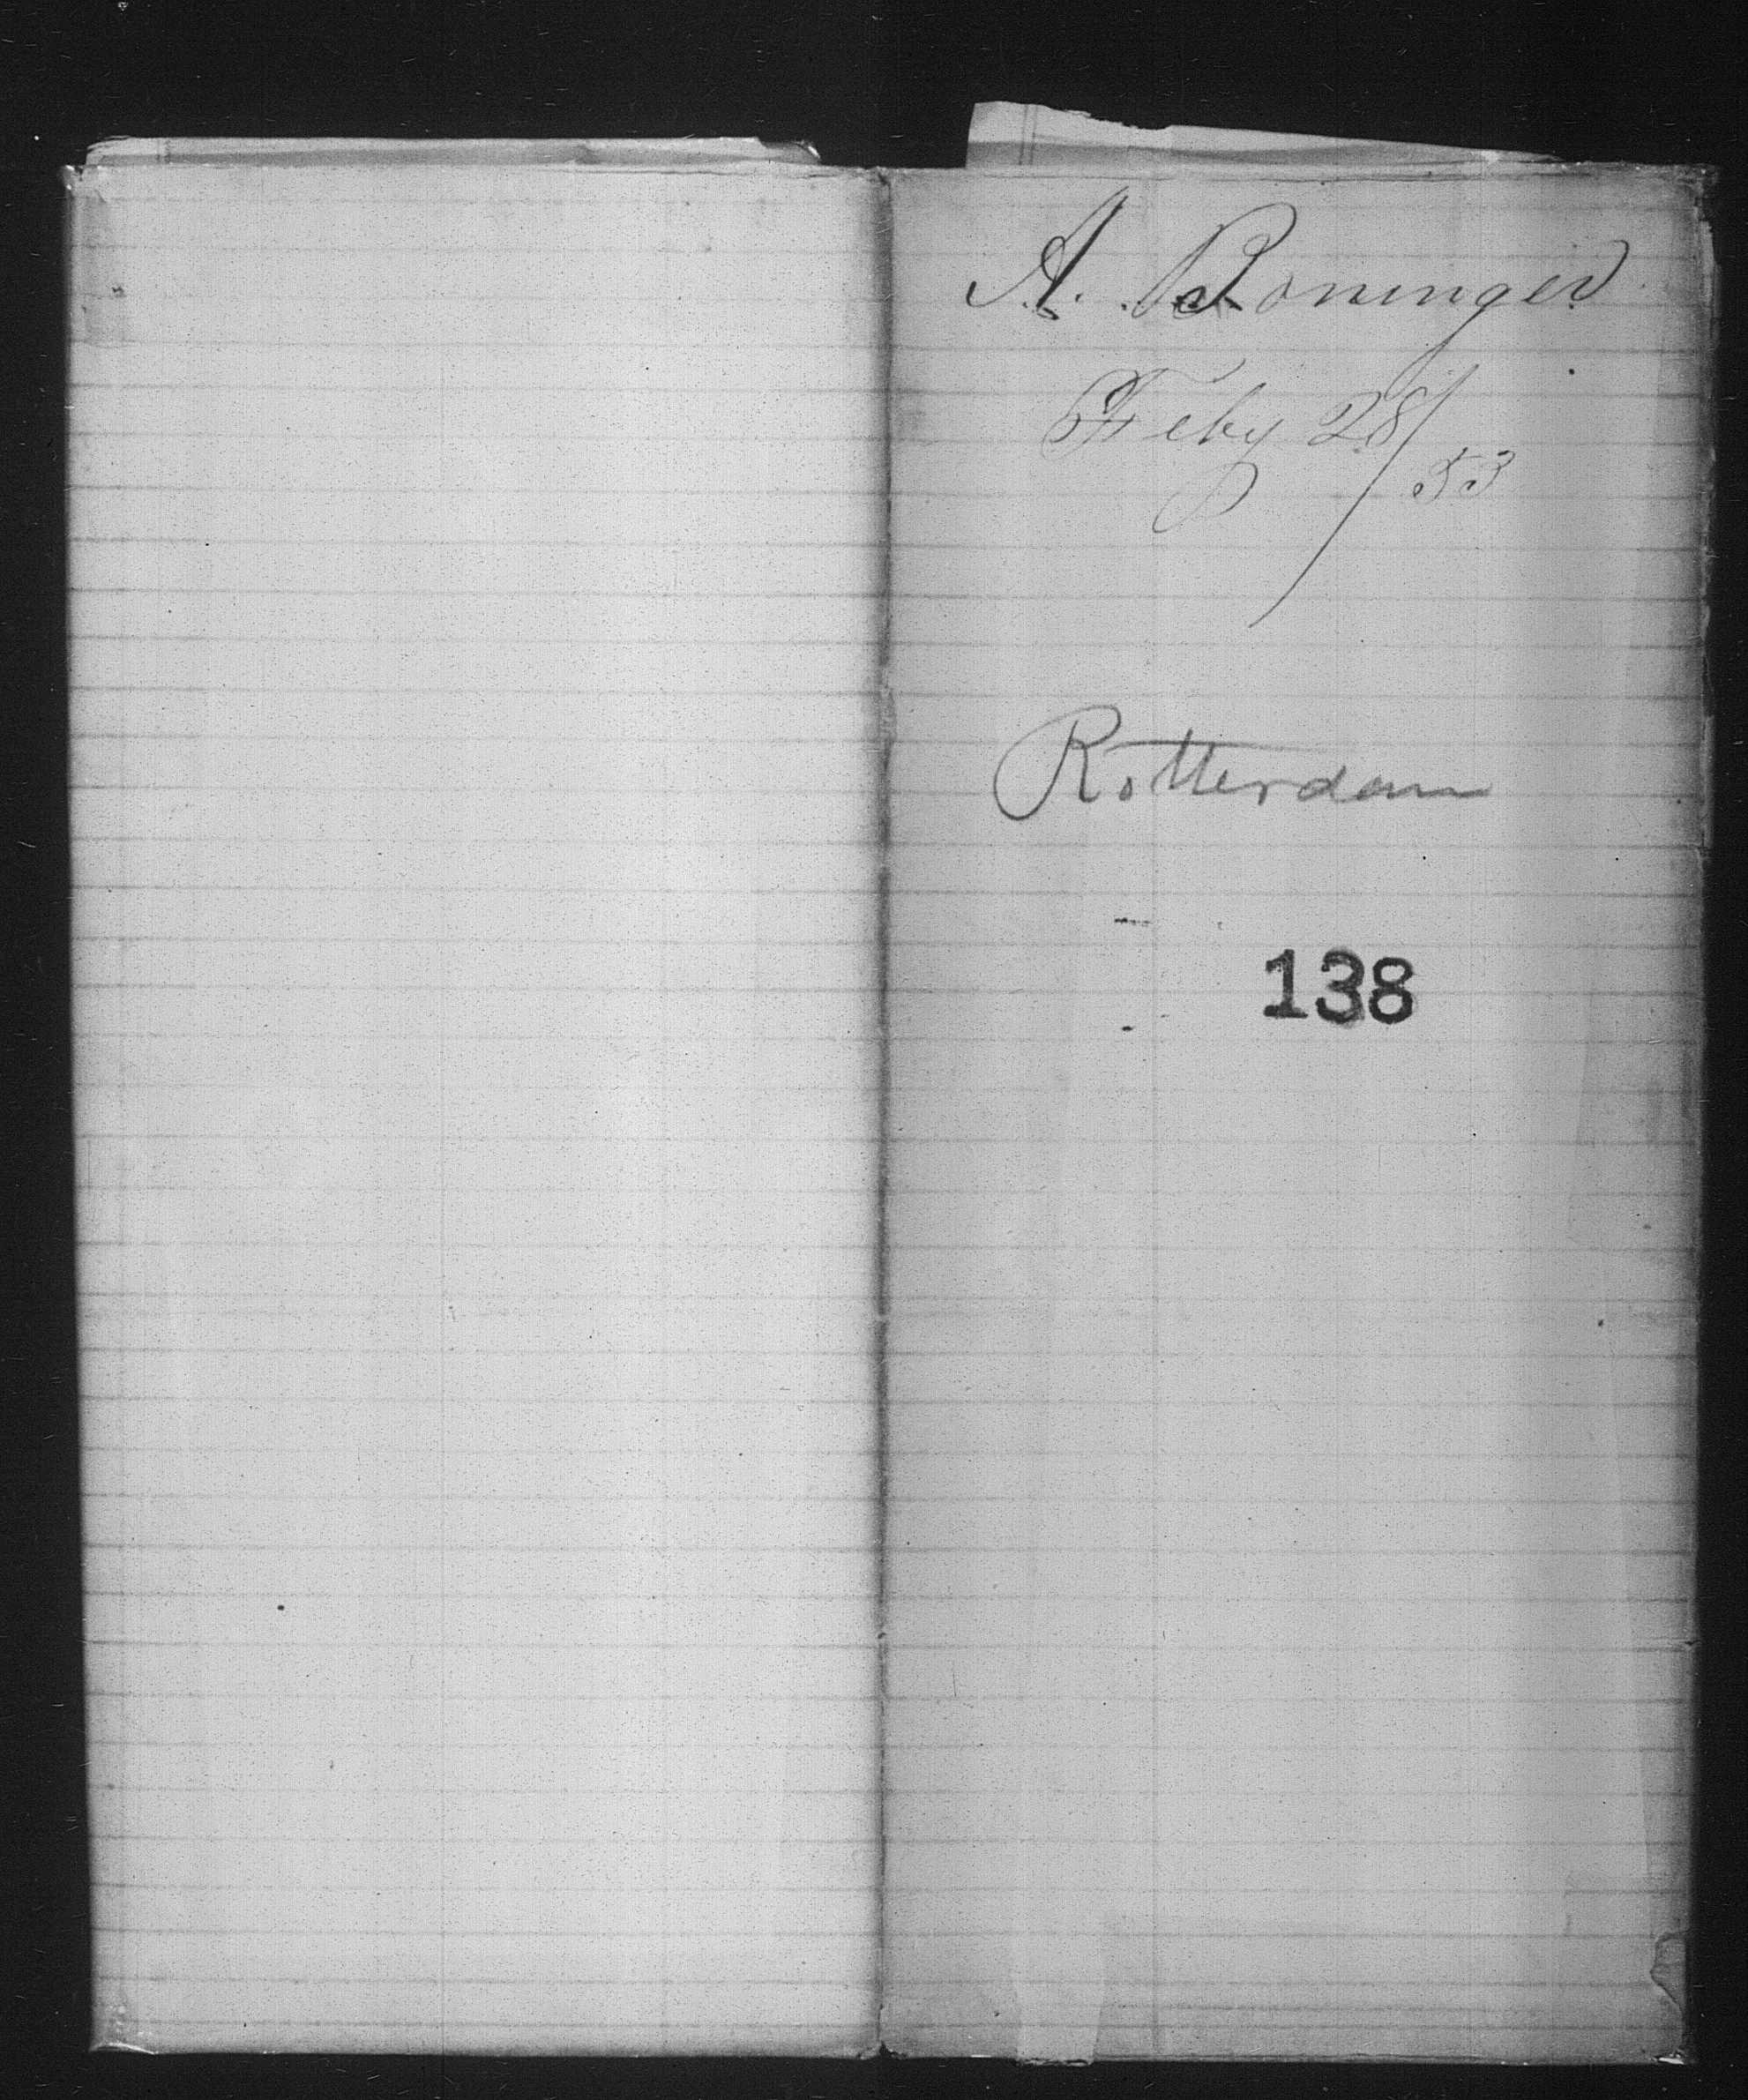 A. Boninger
Feby 28/53
Rotterdam
138